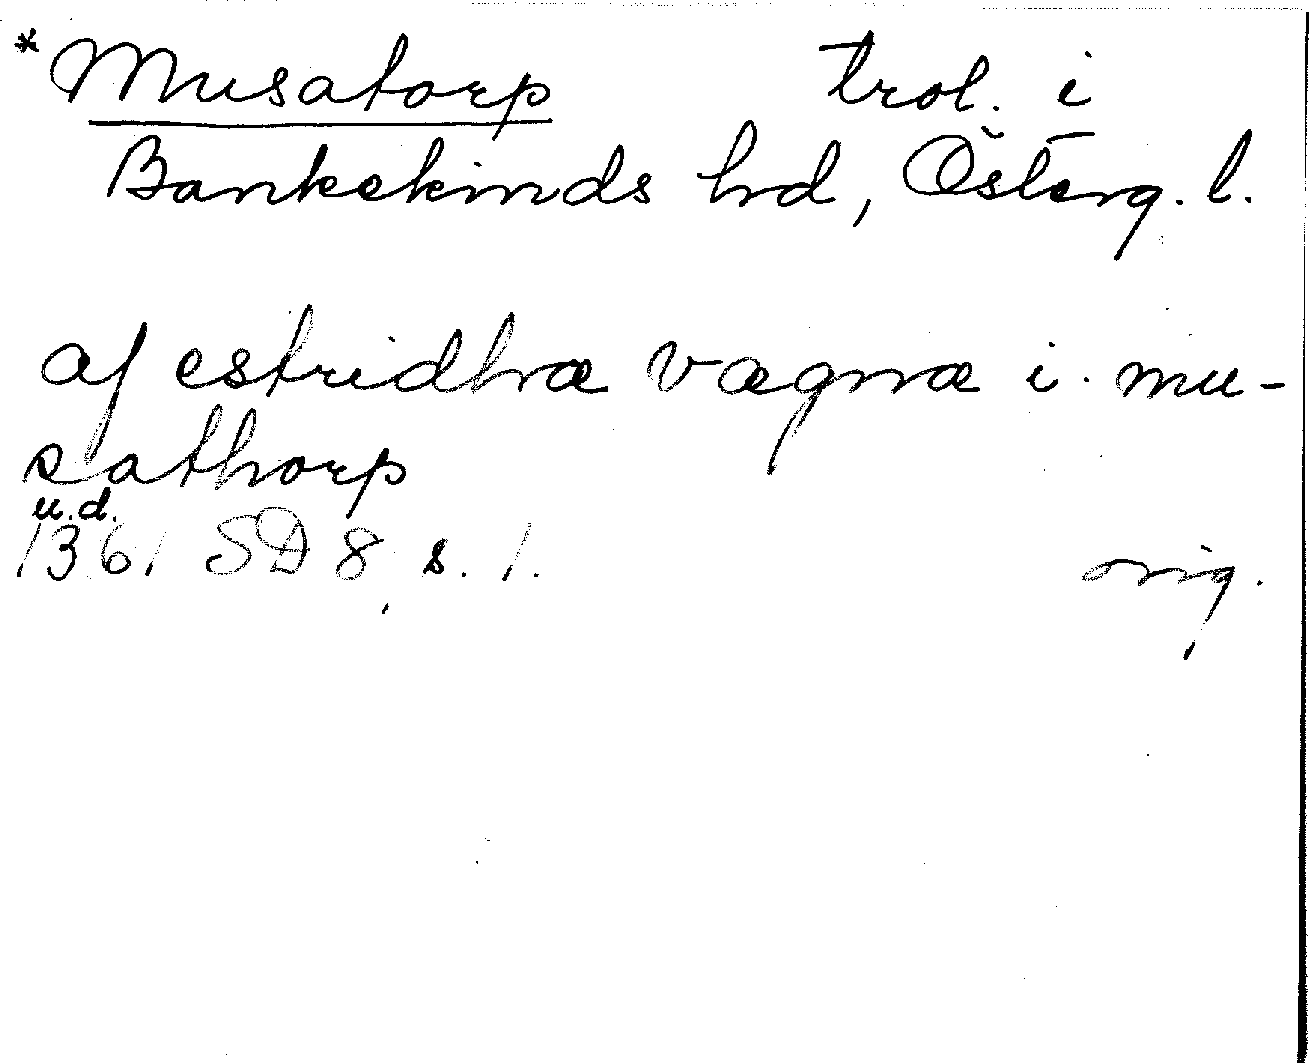 *Musatorp trol. i
Bankekinds hd, Österg. l.
af estridhæ vægnæ i. mu-
sathorp
u.d.
1361 SD 8, s. 1.
orig.